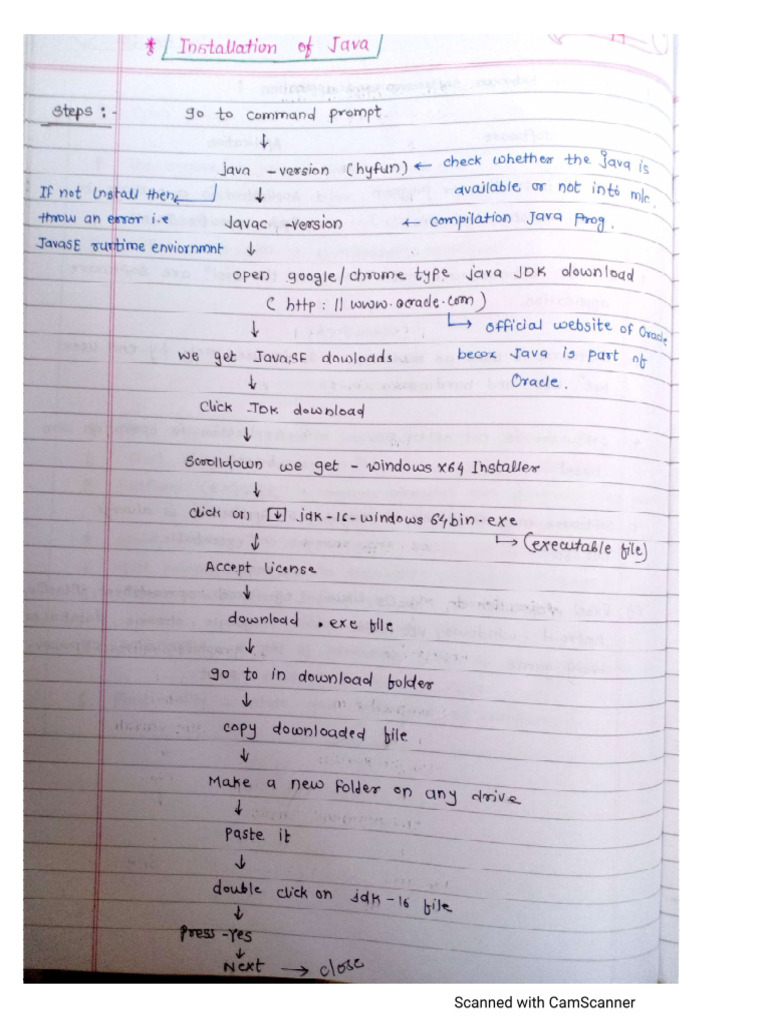 * Installation of Java
Steps :- go to command prompt
↓
java -version (hyfun) ← check whether the java is
available or not into m/c.
If not Install then
throw an error i.e
JavaSE runtime enviornmnt
↓
Javac -version ← compilation Java Prog.
↓
open google/chrome type java JDK download
( http : // www.oracle.com )
↳ official website of Oracle
becoz Java is part of
Oracle.
↓
we get Java,SE dowloads
↓
Click JDK download
↓
Scrolldown we get - windows x64 Installer
↓
click on [↓] jdk-16-windows 64bin.exe
↳ (executable file)
↓
Accept License
↓
download .exe file
↓
go to in download folder
↓
copy downloaded file
↓
Make a new folder on any drive
↓
paste it
↓
double click on jdk-16 file
↓
press -yes
↓
Next → close
Scanned with CamScanner